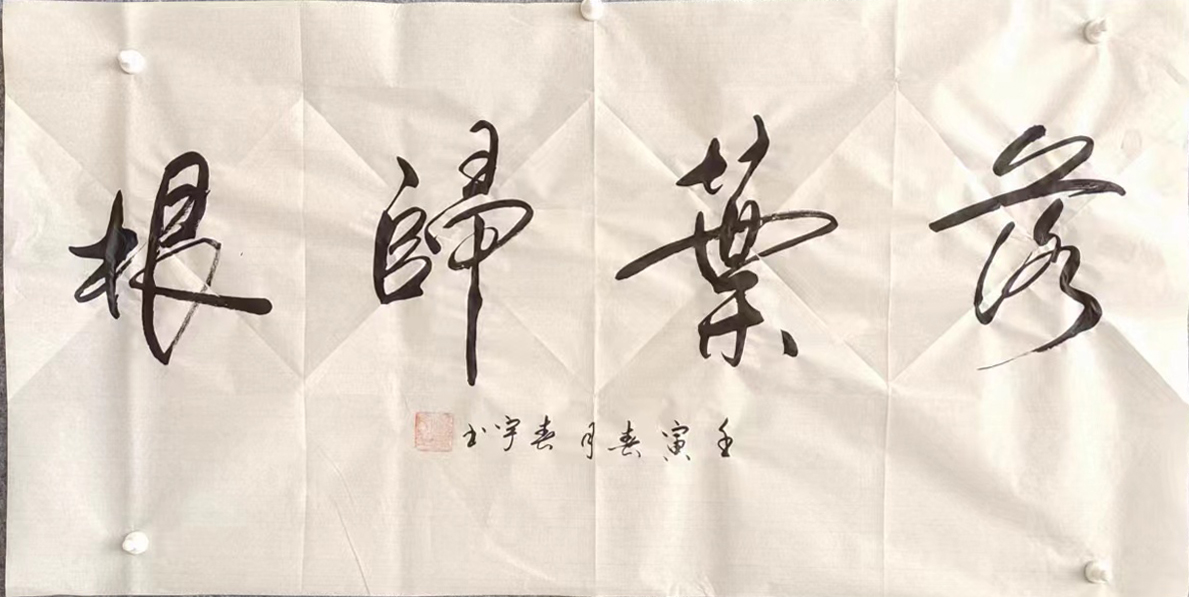 落葉歸根
壬寅春月春宇书